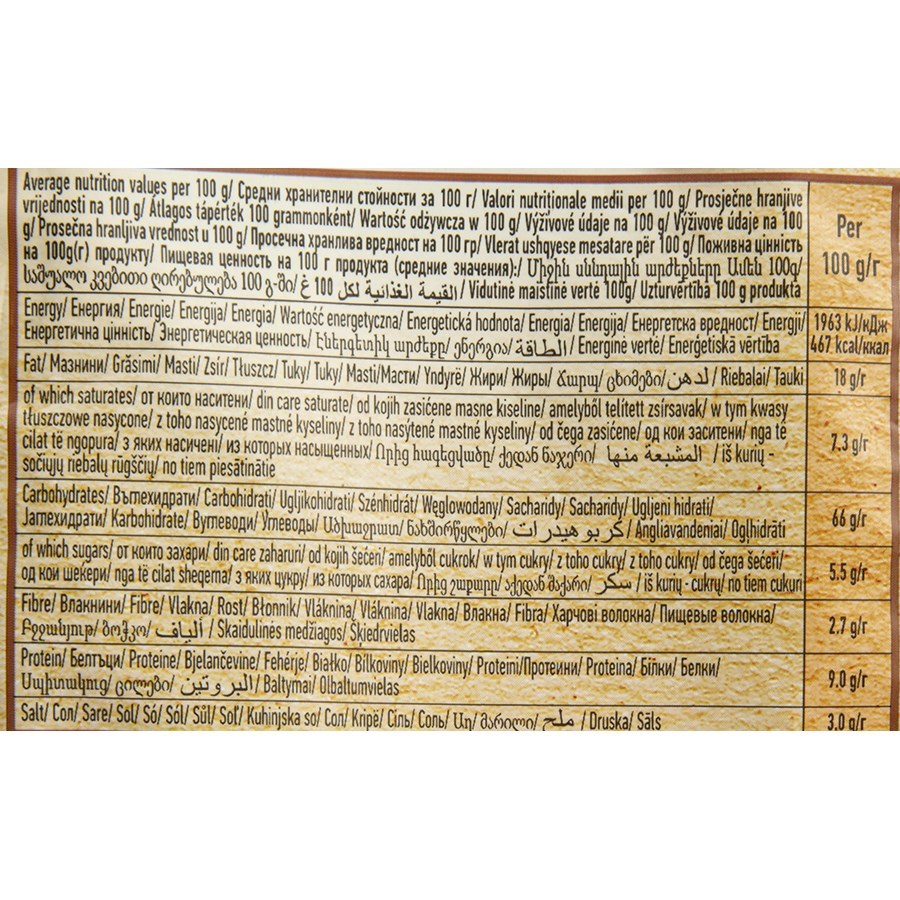 Average nutrition values per 100 g/ Средни хранителни стойности за 100 г/ Valori nutritionale medii per 100 g/ Prosječne hranjive
vrijednosti na 100 g/ Átlagos tápérték 100 grammonként/ Wartość odżywcza w 100 g/ Výživové údaje na 100 g/ Výživové údaje na 100
g/ Prosečna hranljiva vrednost u 100 g/ Просечна хранлива вредност на 100 гр/ Vlerat ushqyese mesatare për 100 g/ Поживна цінність
на 100g(г) продукту/ Пищевая ценность на 100 г продукта (средние значения):/ Միջին սննդային արժեքները Ամեն 100գ/
საშუალო კვებითი ღირებულება 100 გ-ში/ القيمة الغذائية لكل 100 غ / Vidutinė maistinė vertė 100g/ Uzturvērtība 100 g produkta
Per
100 g/г
Energy/ Енергия/ Energie/ Energija/ Energia/ Wartość energetyczna/ Energetická hodnota/ Energia/ Energija/ Енергетска вредност/ Energji/
Енергетична цінність/ Энергетическая ценность/ Էներգետիկ արժեքը/ ენერგია/ الطاقة / Energinė vertė/ Enerģētiskā vērtība
1963 kJ/кДж
467 kcal/ккал
Fat/ Мазнини/ Grăsimi/ Masti/ Zsír/ Tłuszcz/ Tuky/ Tuky/ Masti/Масти/ Yndyrë/ Жири/ Жиры/ Ճարպ/ ცხიმები/ لدهن / Riebalai/ Tauki
18 g/г
of which saturates/ от които наситени/ din care saturate/ od kojih zasićene masne kiseline/ amelyből telített zsírsavak/ w tym kwasy
tłuszczowe nasycone/ z toho nasycené mastné kyseliny/ z toho nasýtené mastné kyseliny/ od čega zasićene/ од кои заситени/ nga të
cilat të ngopura/ з яких насичені/ из которых насыщенных/ Որից հագեցվածը/ ქედან ნაჯერი/ المشبعة منها / iš kurių -
sočiųjų riebalų rūgščių/ no tiem piesātinātie
7.3 g/г
Carbohydrates/ Въглехидрати/ Carbohidrați/ Ugljikohidrati/ Szénhidrát/ Węglowodany/ Sacharidy/ Sacharidy/ Ugljeni hidrati/
Јаглехидрати/ Karbohidrate/ Вуглеводи/ Углеводы/ Ածխաջրատ/ ნახშირწყლები/ كربو هيدرات / Angliavandeniai/ Ogļhidrāti
66 g/г
of which sugars/ от които захари/ din care zaharuri/ od kojih šećeri/ amelyből cukrok/ w tym cukry/ z toho cukry/ z toho cukry/ od čega šećeri/
од кои шеќери/ nga të cilat sheqerna/ з яких цукру/ из которых сахара/ Որից շաքարը/ აქედან შაქარი/ سكر / iš kurių - cukrų/ no tiem cukuri
5.5 g/г
Fibre/ Влакнини/ Fibre/ Vlakna/ Rost/ Błonnik/ Vláknina/ Vláknina/ Vlakna/ Влакна/ Fibra/ Харчові волокна/ Пищевые волокна/
Բջջանյութ/ ბოჭკო/ ألياف / Skaidulinės medžiagos/ Šķiedrvielas
2.7 g/г
Protein/ Белтъци/ Proteine/ Bjelančevine/ Fehérje/ Białko/ Bílkoviny/ Bielkoviny/ Proteini/Протеини/ Proteina/ Білки/ Белки/
Սպիտակուց/ ცილები/ البروتين/ Baltymai/ Olbaltumvielas
9.0 g/г
Salt/ Сол/ Sare/ Sol/ Só/ Sól/ Sůl/ Soľ/ Kuhinjska so/ Сол/ Kripë/ Сіль/ Соль/ Աղ/ მარილი/ ملح / Druska/ Sāls
3.0 g/г